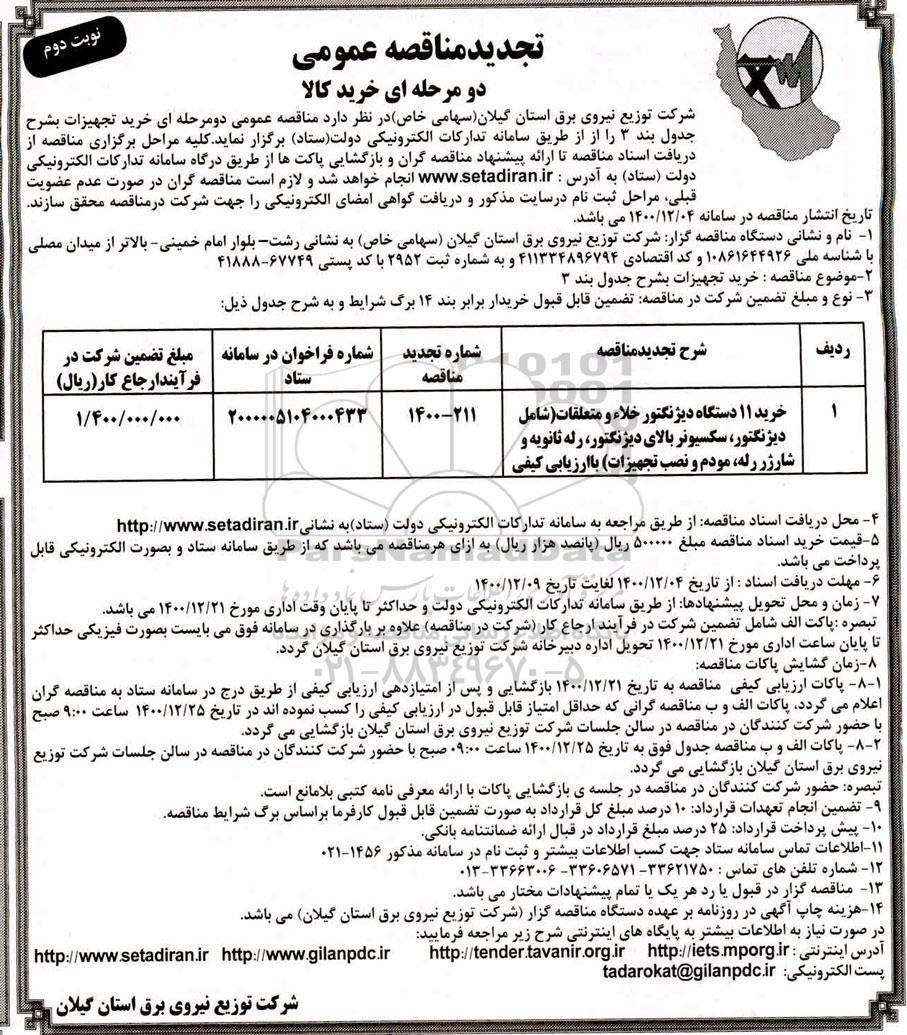 نوبت دوم
تجدیدمناقصه عمومی
دو مرحله ای خرید کالا
شرکت توزیع نیروی برق استان گیلان(سهامی خاص)در نظر دارد مناقصه عمومی دومرحله ای خرید تجهیزات بشرح
جدول بند ۳ را از از طریق سامانه تدارکات الکترونیکی دولت(ستاد) برگزار نماید.کلیه مراحل برگزاری مناقصه از
دریافت اسناد مناقصه تا ارائه پیشنهاد مناقصه گران و بازگشایی پاکت ها از طریق درگاه سامانه تدارکات الکترونیکی
دولت (ستاد) به آدرس : www.setadiran.ir انجام خواهد شد و لازم است مناقصه گران در صورت عدم عضویت
قبلی، مراحل ثبت نام درسایت مذکور و دریافت گواهی امضای الکترونیکی را جهت شرکت درمناقصه محقق سازند.
تاریخ انتشار مناقصه در سامانه ۱۴۰۰/۱۲/۰۴ می باشد.
۱- نام و نشانی دستگاه مناقصه گزار: شرکت توزیع نیروی برق استان گیلان (سهامی خاص) به نشانی رشت- بلوار امام خمینی- بالاتر از میدان مصلی
با شناسه ملی ۱۰۸۶۱۶۴۴۹۲۶ و کد اقتصادی ۴۱۱۳۳۴۸۹۶۷۹۴ و به شماره ثبت ۲۹۵۲ با کد پستی ۶۷۷۴۹-۴۱۸۸۸
۲-موضوع مناقصه : خرید تجهیزات بشرح جدول بند ۳
۳- نوع و مبلغ تضمین شرکت در مناقصه: تضمین قابل قبول خریدار برابر بند ۱۴ برگ شرایط و به شرح جدول ذیل:
ردیف شرح تجدیدمناقصه شماره تجدید مناقصه شماره فراخوان در سامانه ستاد مبلغ تضمین شرکت در فرآیندارجاع کار(ریال)
۱ خرید ۱۱ دستگاه دیژنگتور خلاء و متعلقات(شامل ۲۱۱-۱۴۰۰ ۲۰۰۰۰۰۵۱۰۴۰۰۰۴۳۳ ۱/۴۰۰/۰۰۰/۰۰۰
دیژنگتور، سکسیونر بالای دیژنگتور، رله ثانویه و
شارژر رله، مودم و نصب تجهیزات) باارزیابی کیفی
۴- محل دریافت اسناد مناقصه: از طریق مراجعه به سامانه تدارکات الکترونیکی دولت (ستاد)به نشانی http://www.setadiran.ir
۵-قیمت خرید اسناد مناقصه مبلغ ۵۰۰۰۰۰ ریال (پانصد هزار ریال) به ازای هرمناقصه می باشد که از طریق سامانه ستاد و بصورت الکترونیکی قابل
پرداخت می باشد.
۶- مهلت دریافت اسناد : از تاریخ ۱۴۰۰/۱۲/۰۴ لغایت تاریخ ۱۴۰۰/۱۲/۰۹
۷- زمان و محل تحویل پیشنهادها: از طریق سامانه تدارکات الکترونیکی دولت و حداکثر تا پایان وقت اداری مورخ ۱۴۰۰/۱۲/۲۱ می باشد.
تبصره :پاکت الف شامل تضمین شرکت در فرآیند ارجاع کار (شرکت در مناقصه) علاوه بر بارگذاری در سامانه فوق می بایست بصورت فیزیکی حداکثر
تا پایان ساعت اداری مورخ ۱۴۰۰/۱۲/۲۱ تحویل اداره دبیرخانه شرکت توزیع نیروی برق استان گیلان گردد.
۸-زمان گشایش پاکات مناقصه:
۸-۱- پاکات ارزیابی کیفی مناقصه به تاریخ ۱۴۰۰/۱۲/۲۱ بازگشایی و پس از امتیازدهی ارزیابی کیفی از طریق درج در سامانه ستاد به مناقصه گران
اعلام می گردد، پاکات الف و ب مناقصه گرانی که حداقل امتیاز قابل قبول در ارزیابی کیفی را کسب نموده اند در تاریخ ۱۴۰۰/۱۲/۲۵ ساعت ۹:۰۰ صبح
با حضور شرکت کنندگان در مناقصه در سالن جلسات شرکت توزیع نیروی برق استان گیلان بازگشایی می گردد.
۸-۲- پاکات الف و ب مناقصه جدول فوق به تاریخ ۱۴۰۰/۱۲/۲۵ ساعت ۰۹:۰۰ صبح با حضور شرکت کنندگان در مناقصه در سالن جلسات شرکت توزیع
نیروی برق استان گیلان بازگشایی می گردد.
تبصره: حضور شرکت کنندگان در مناقصه در جلسه ی بازگشایی پاکات با ارائه معرفی نامه کتبی بلامانع است.
۹- تضمین انجام تعهدات قرارداد: ۱۰ درصد مبلغ کل قرارداد به صورت تضمین قابل قبول کارفرما براساس برگ شرایط مناقصه.
۱۰- پیش پرداخت قرارداد: ۲۵ درصد مبلغ قرارداد در قبال ارائه ضمانتنامه بانکی.
۱۱-اطلاعات تماس سامانه ستاد جهت کسب اطلاعات بیشتر و ثبت نام در سامانه مذکور ۱۴۵۶-۰۲۱
۱۲- شماره تلفن های تماس : ۳۳۶۲۱۷۵۰- ۳۳۶۰۶۵۷۱- ۳۳۶۶۳۰۰۶-۰۱۳
۱۳- مناقصه گزار در قبول یا رد هر یک یا تمام پیشنهادات مختار می باشد.
۱۴-هزینه چاپ آگهی در روزنامه بر عهده دستگاه مناقصه گزار (شرکت توزیع نیروی برق استان گیلان) می باشد.
در صورت نیاز به اطلاعات بیشتر به پایگاه های اینترنتی شرح زیر مراجعه فرمایید:
آدرس اینترنتی : http://iets.mporg.ir http://tender.tavanir.org.ir http://www.gilanpdc.ir http://www.setadiran.ir
پست الکترونیکی: tadarokat@gilanpdc.ir
شرکت توزیع نیروی برق استان گیلان
ParsNamadData
۰۲۱-۸۸۳۴۹۶۷۰-۵